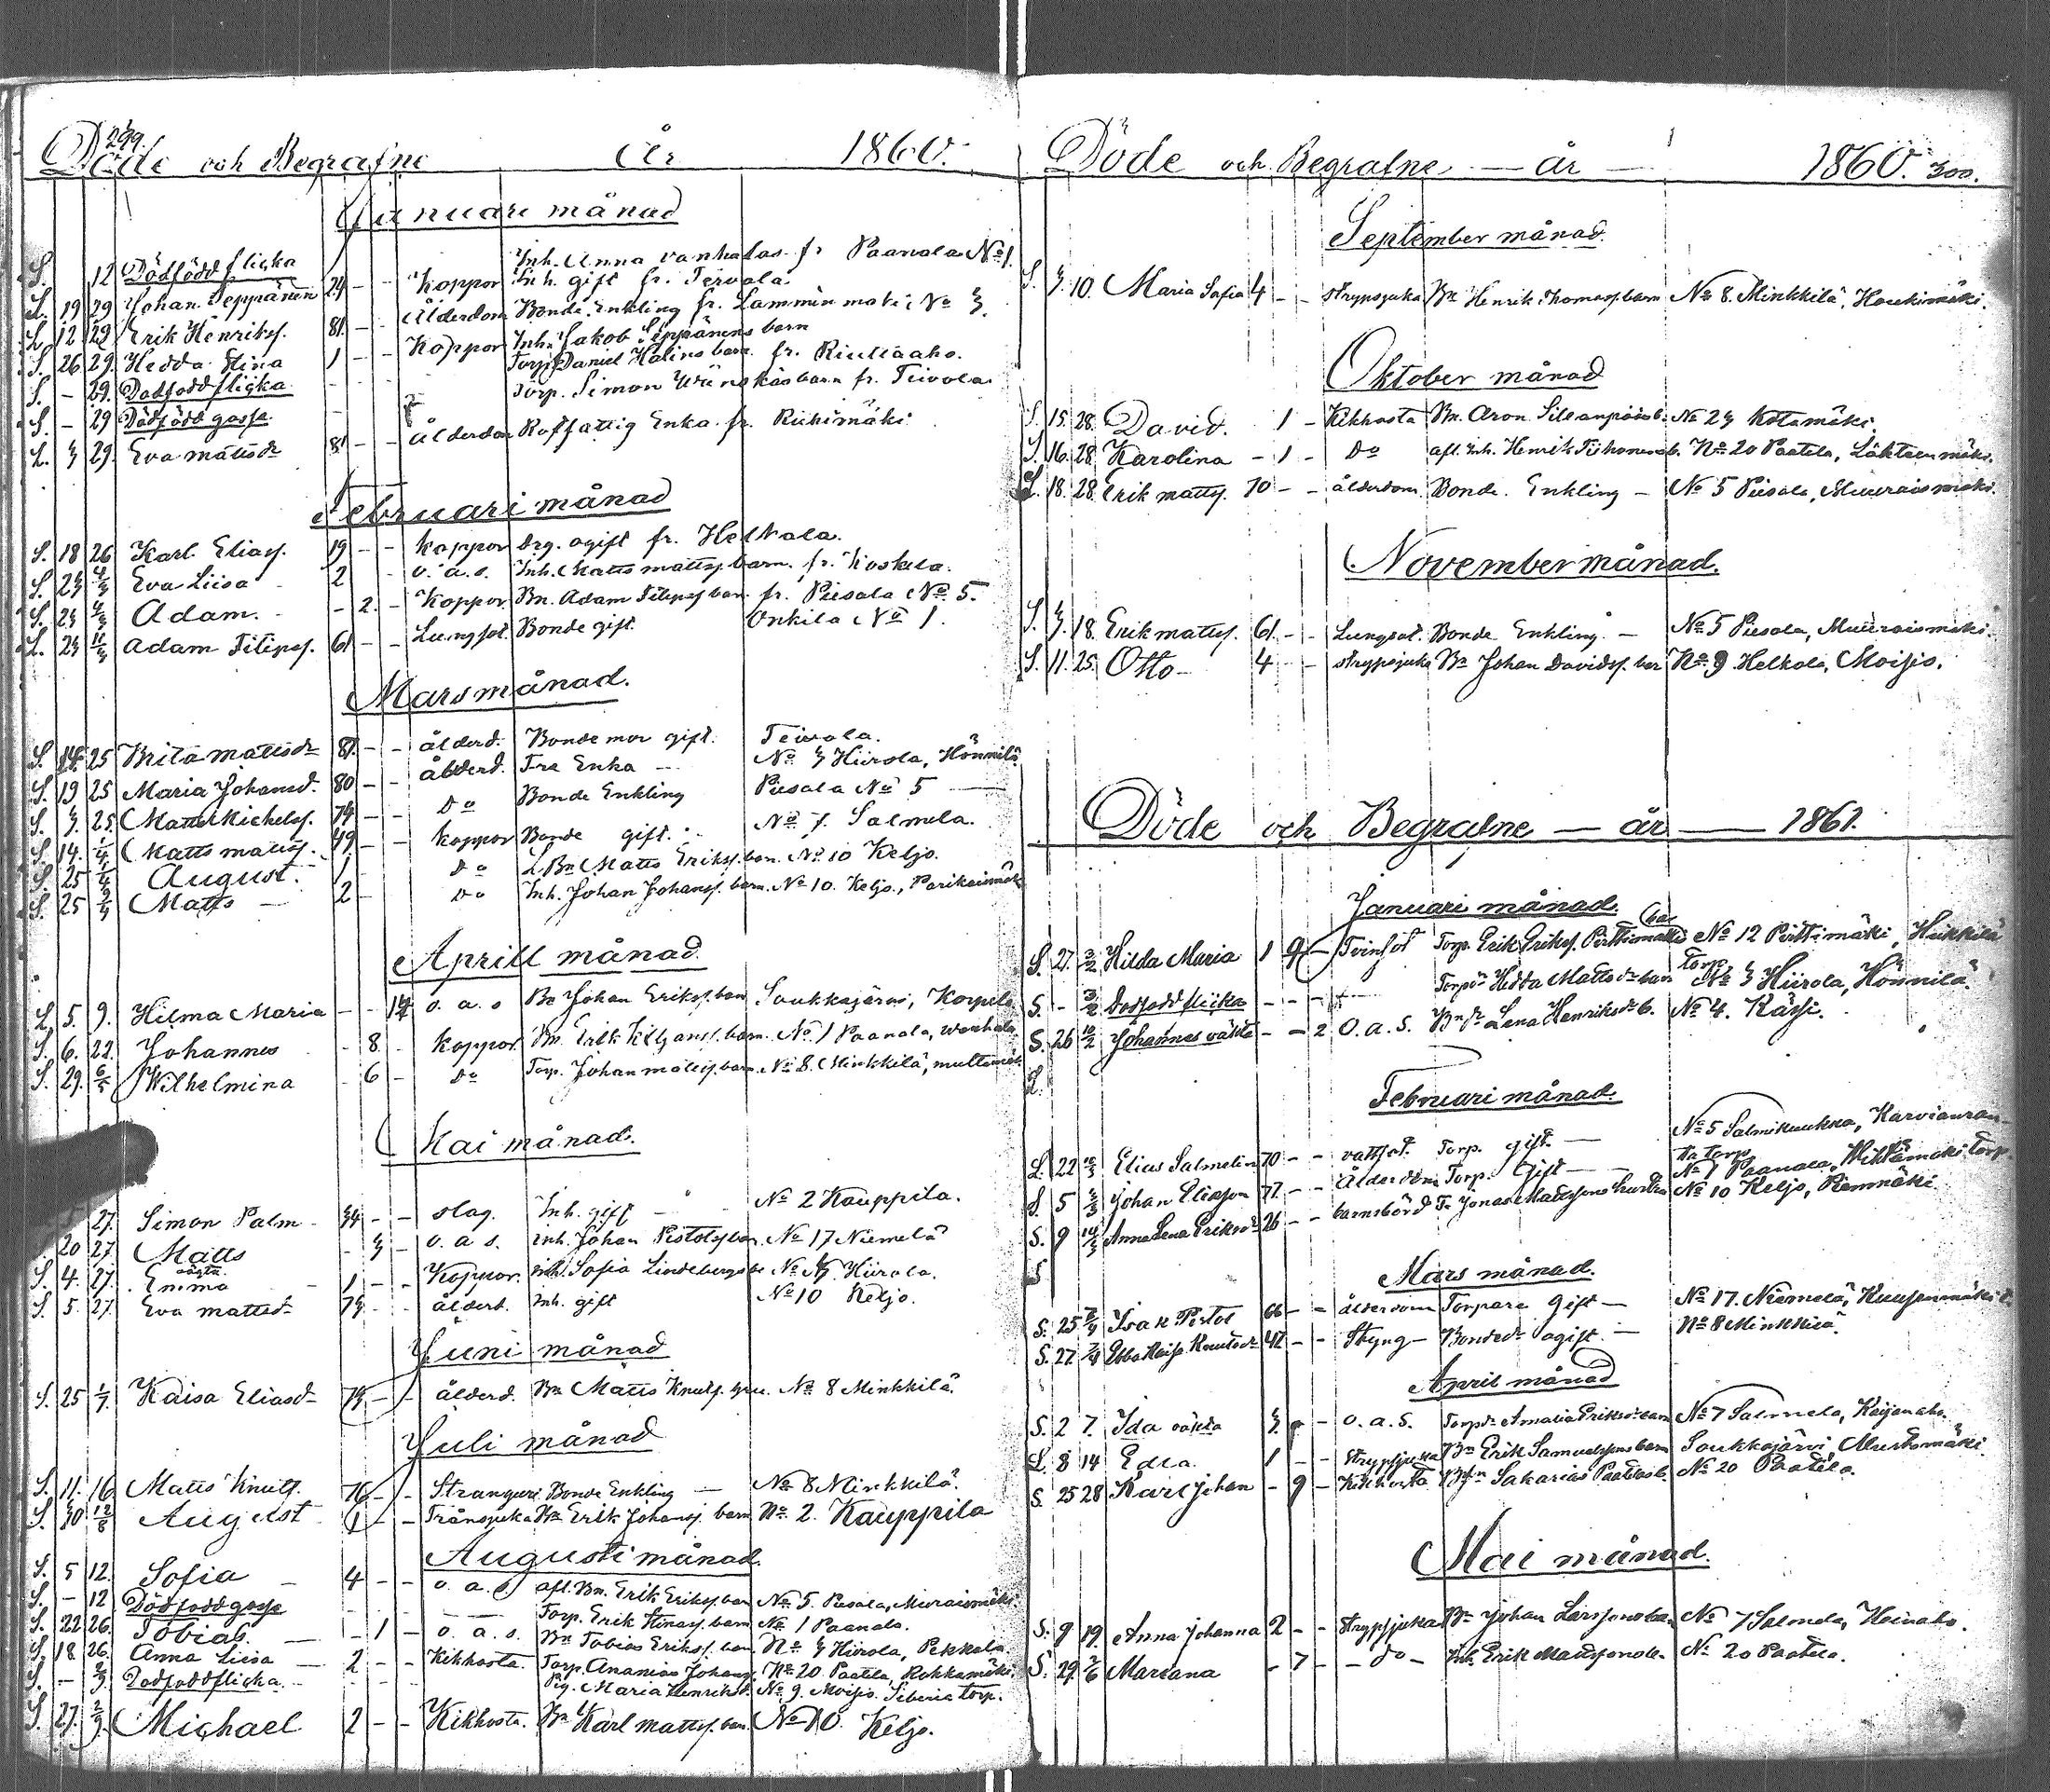 299.
Döde och Begrafne År 1860.
Januari månad
S. 12 Dödfödd flicka Inh. Anna vanhatas fr Paanala No 1.
S. 19 29 Johan Seppänen 24 - - Koppor Inh. gift fr. Teivola
S. 12 29 Erik Henriks. 81. - - Ålderdom Bonde Enkling fr. Lamminmäki No 3.
S. 26 29. Hedda Stina 1 - - Koppor Inh. Jakob Seppänens barn
S. - 29. Dödfödd flicka Torp. Daniel Halins barn. fr. Riuttaaho.
S. - 29 Dödfödd gosse - Torp. Simon barn fr. Teivola
S. 3 29. Eva mattsdr 81 - - ålderdom Rotfattig Enka fr. Riihimäki
Februari månad
S. 18 26 Karl Eliass. 19 - - koppor Drg. ogift fr. Helkala.
S. 23 4/3 Eva Liisa 2 o. a. s. Inh. Matts matts. barn. fr. Koskela.
S. 23 4/3 Adam. - 2. - Koppor Bn. Adam Filips. barn fr. Piesala No 5.
S. 23 11/3 Adam Filips. 61 - - Lungsot. Bonde gift. Onkila No 1.
Mars månad.
S. 14. 25 Brita mattsdr 81. - - ålderd. Bondemor gift. Teivola.
S. 19 25 Maria Johansd. 80 - - ålderd. Enka - No 3 Hiirola, Hönnilä
S. 3. 25. Matts Michelss. 74 - - Do Bonde Enkling Piesala No 5
S. 14. 1/4 Matts matts. 49 - - koppor Bonde gift. No 7. Salmela.
S. 25 August. 1 - Do Bn Matts Eriks. barn. No 10 Keljo.
S. 25 Matts - 2 - Do Inh. Johan Johans. barn. No 10. Keljo,
Aprill månad.
S. 5. 9. Hilma Maria - - 14 o. a. s Bn Johan Eriks. barn Saukkajärvi, Korpela
S. 6. 22. Johannes - 8 - koppor Bn. Erik barn. No 1 Paanala,
S. 29. 6/5 Wilhelmina - 6 - Do Torp. Johan matts. barn. No 8. Minkkilä,
Mai månad.
27. Simon Palm - 34 - - slag. Inh. gift - No 2 Kauppila.
20 27. Matts - 3 - o. a s. inh. Johan barn No 17 Niemelä
S. 4. 27. Emma oägta 1 - - Koppor. inh. Sofia Lindebergs b. No 3 Hiirola.
S. 5. 27. Eva mattsdr 74 - - ålderd. Inh. gift No 10 Keljo.
Juni månad
S. 25 1/7 Kaisa Eliasdr 74 - - ålderd. Bn Matts Knuts. hu. No 8 Minkkilä.
Juli månad
S. 11. 16 Matts Knuts. 76 - - Stranguri Bonde Enkling - No 8 Minkkilä.
S. 30 12/8 August 1 - - Trånsjuka Bn Erik Johans. barn No 2. Kauppila
Augusti månad.
S. 5 12. Sofia 4 - - o. a. s. afl. Bn. Erik Eriks. barn No 5. Piesala, Muuraismäki
S. - 12 Dödfödd gosse - - Torp. Erik barn No 1 Paanala.
S. 22 26. Tobias. - - 1 - o. a. s. Bn Tobias Eriks. barn. No 3 Hiirola, Pekkala.
S. 18 26. Anna Liisa - 2 - - Kikhosta. Torp. Ananias Johans. No 20. Paatela, Rokkamäki.
S. - Dödfödd flicka. Pig. Maria Henriksd. No 9. Moisio. Siberia torp.
S. 27. 2/9. Michael 2 - - Kikhosta. Bn Karl matts. barn. No 10. Keljo.
Döde och Begrafne - år - 1860. 300.
September månad.
S. 3. 10. Maria Sofia 4 - - strypsjuka Bn Henrik Thomass. barn No 8. Minkkilä, Haukimäki.
Oktober månad
S. 15. 28. David. 1 - Kikhosta Bn. Aron b. No 23 Kotamäki.
S. 16. 28. Karolina - 1 - Do afl. Inh. Henrik Tiihonens b. No 20 Paatela,
S. 18. 28. Erik matts. 70 - - ålderdom Bonde. Enkling - No 5 Piesala, Muuraismäki.
November månad.
S. 3. 18. Erik matts. 61. - - Lungsot. Bonde Enkling. - No 5 Piesala, Muuraismäki.
S. 11. 25. Otto - 4 - - strypsjuka Bn Johan Davids. bar No 9 Helkala, Moisio.
Döde och Begrafne - år - 1861.
Januari månad.
S. 27. 3/2 Hilda Maria 1 9 - Tvinsot Torp. Erik Eriks. Pirttimäkis bar No 12 Pirttimäki, Heikkilä torp
S. - 3/2 Dödfödd flicka - - - Torpdr Hedda Mattsdr barn No 3 Hiirola, Hönnilä.
S. 26 10/2 Johannes oäkta - - 2 O. a. S. Bn dr Lena Henriksdr b. No 4. Kärsi.
S.
Februari månad.
S. 22 10/3 Elias Salmelin 70 - - vattsot. Torp. gift. - No 5 Salmikuukka, torp
S. 5 3/3 Johan Eliasson 77. - - Ålderdom Torp. Gift - No 1 Paanala, torp.
S. 9 Anna Lena Eriksdr 26 - - barnsbörd Jonas Mattssons hustru No 10 Keljo,
S
Mars månad.
S. 25 Isak Pistol 66 - - ålderdom Torpare Gift - No 17. Niemelä,
S. 27 Ebba Kaisa Knutsdr 42 - - Styng - Bondedr ogift. - No 8 Minkkilä.
April månad
S. 2 7. Ida oäkta 3. - - o. a. S. Torpdr Amalia Eriksdr barn No 7 Salmela, Keijonaho.
S. 8 14 Edla. 1 - - Strypsjuka Bn Erik Samuelssons barn Saukkojärvi, Mustamäki
S. 25 28 Karl Johan - 9 - Kikhosta Sakarias b. No 20 Paatela.
Mai månad.
S. 9 19. Anna Johanna 2 - - Strypsjuka Bn Johan Larssons barn No 7 Salmela, Heinaho.
S. 29. 2/6 Mariana - 7 - - do - Inh. Erik Mattssons b. No 20 Paatela.